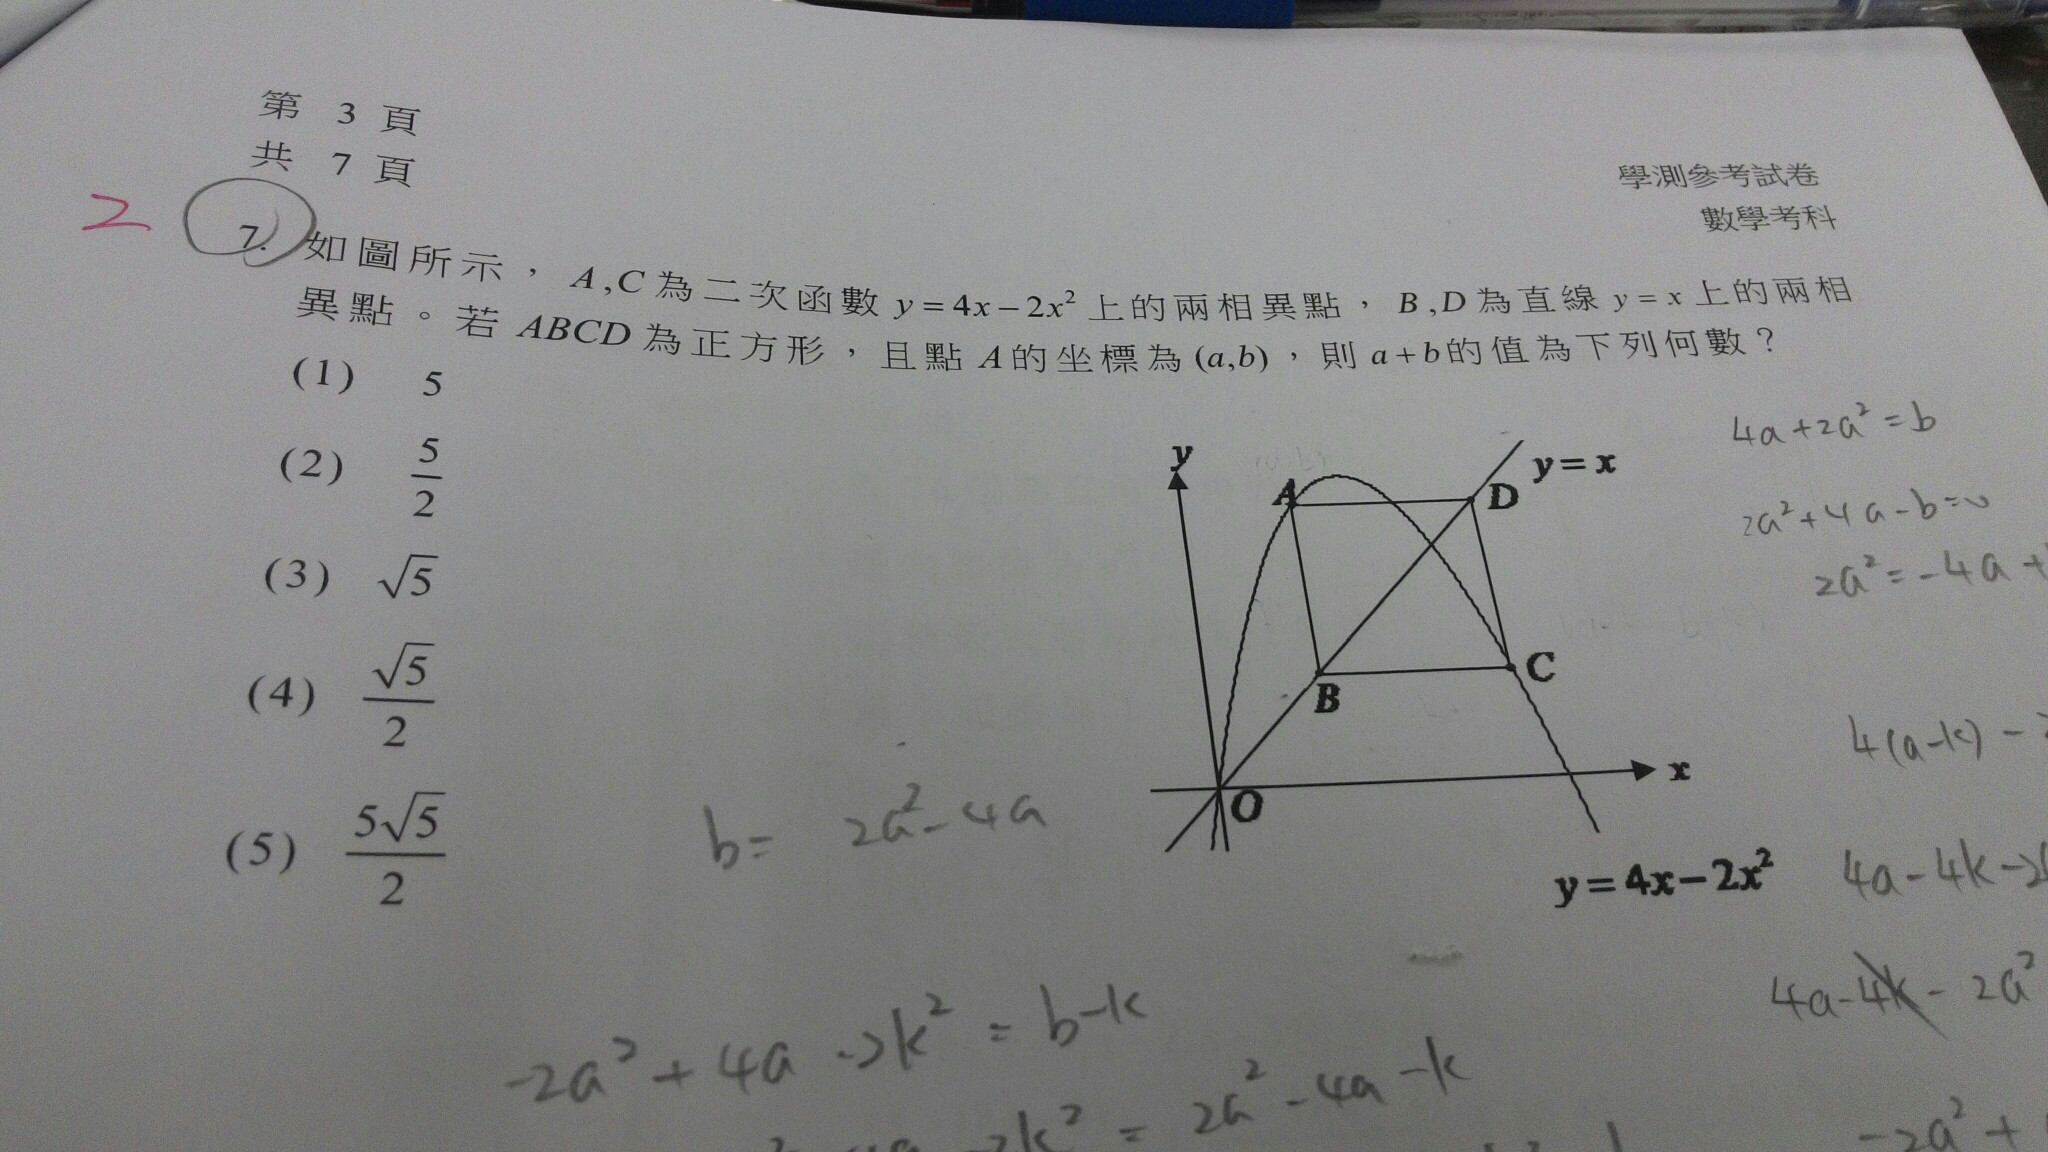 第 3 頁
共 7 頁
學測參考試卷
數學考科
2
7. 如圖所示，A,C為二次函數 y=4x-2x² 上的兩相異點，B,D為直線 y=x 上的兩相
異點。若 ABCD 為正方形，且點 A的坐標為 (a,b)，則 a+b的值為下列何數？
(1) 5
(2) 5/2
(3) √5
(4) √5/2
(5) 5√5/2
y
A
D
y=x
B
C
O
x
y=4x-2x²
4a+2a²=b
2a²+4a-b=0
2a²=-4a+
4(a-k)-
4a-4k-2
4a-4k-2a²
b= 2a²-4a
-2a²+4a-2k²=b-k
-2k²=2a²-4a-k
-2a²+